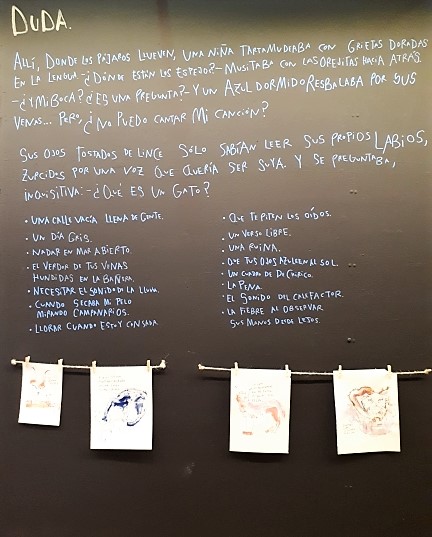 DUDA.
ALLÍ, DONDE LOS PÁJAROS LLUEVEN, UNA NIÑA TARTAMUDEABA CON GRIETAS DORADAS
EN LA LENGUA -¿DÓNDE ESTÁN LOS ESPEJO?- MUSITABA CON LAS OREJITAS HACIA ATRÁS.
-¿Y MI BOCA? ¿ES UNA PREGUNTA?- Y UN AZUL DORMIDO RESBALABA POR SUS
VENAS... PERO, ¿NO PUEDO CANTAR MI CANCIÓN?
SUS OJOS TOSTADOS DE LINCE SÓLO SABÍAN LEER SUS PROPIOS LABIOS,
ZURCIDOS POR UNA VOZ QUE QUERÍA SER SUYA. Y SE PREGUNTABA,
INQUISITIVA: -¿QUÉ ES UN GATO?
• UNA CALLE VACÍA LLENA DE GENTE.
• UN DÍA GRIS.
• NADAR EN MAR ABIERTO.
• EL VERDOR DE TUS VENAS
HUNDIDAS EN LA BAÑERA.
• NECESITAR EL SONIDO DE LA LLUVIA.
• CUANDO SECABA MI PELO
MIRANDO CAMPANARIOS.
• LLORAR CUANDO ESTOY CANSADA.
• QUE TE PITEN LOS OÍDOS.
• UN VERSO LIBRE.
• UNA RUINA.
• QUE TUS OJOS AZULEEN AL SOL.
• UN CUADRO DE DE CHIRICO.
• LA PENA.
• EL SONIDO DEL CALEFACTOR.
• LA FIEBRE AL OBSERVAR
SUS MANOS DESDE LEJOS.